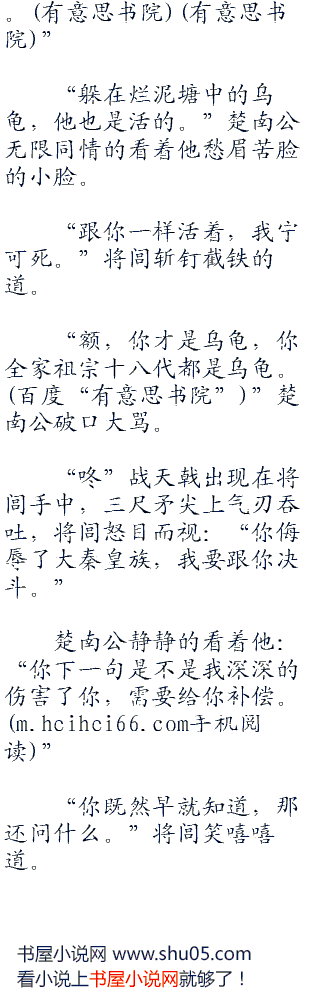 。(有意思书院)(有意思书
院)”
“躲在烂泥塘中的乌
龟，他也是活的。”楚南公
无限同情的看着他愁眉苦脸
的小脸。
“跟你一样活着，我宁
可死。”将闾斩钉截铁的
道。
“额，你才是乌龟，你
全家祖宗十八代都是乌龟。
(百度“有意思书院”)”楚
南公破口大骂。
“咚”战天戟出现在将
闾手中，三尺矛尖上气刃吞
吐，将闾怒目而视：“你侮
辱了大秦皇族，我要跟你决
斗。”
楚南公静静的看着他：
“你下一句是不是我深深的
伤害了你，需要给你补偿。
(m.hcihci66.com手机阅
读)”
“你既然早就知道，那
还问什么。”将闾笑嘻嘻
道。
书屋小说网 www.shu05.com
看小说上书屋小说网就够了！